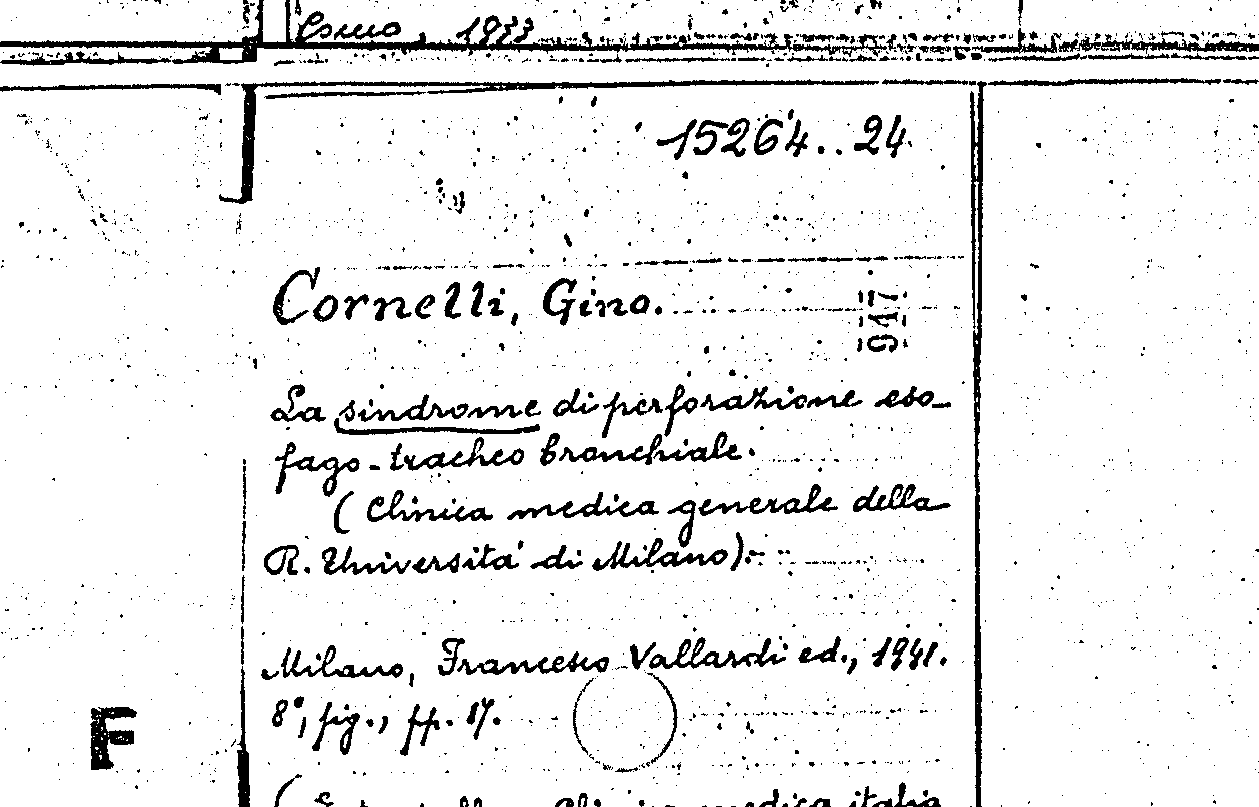 Como, 1933
15264..24
Cornelli, Gino.
947
La sindrome di perforazione eso-
fago-tracheo bronchiale.
(Clinica medica generale della
R. Università di Milano).
Milano, Francesco Vallardi ed., 1941.
8°, fig., pp. 17.
F
medica italia